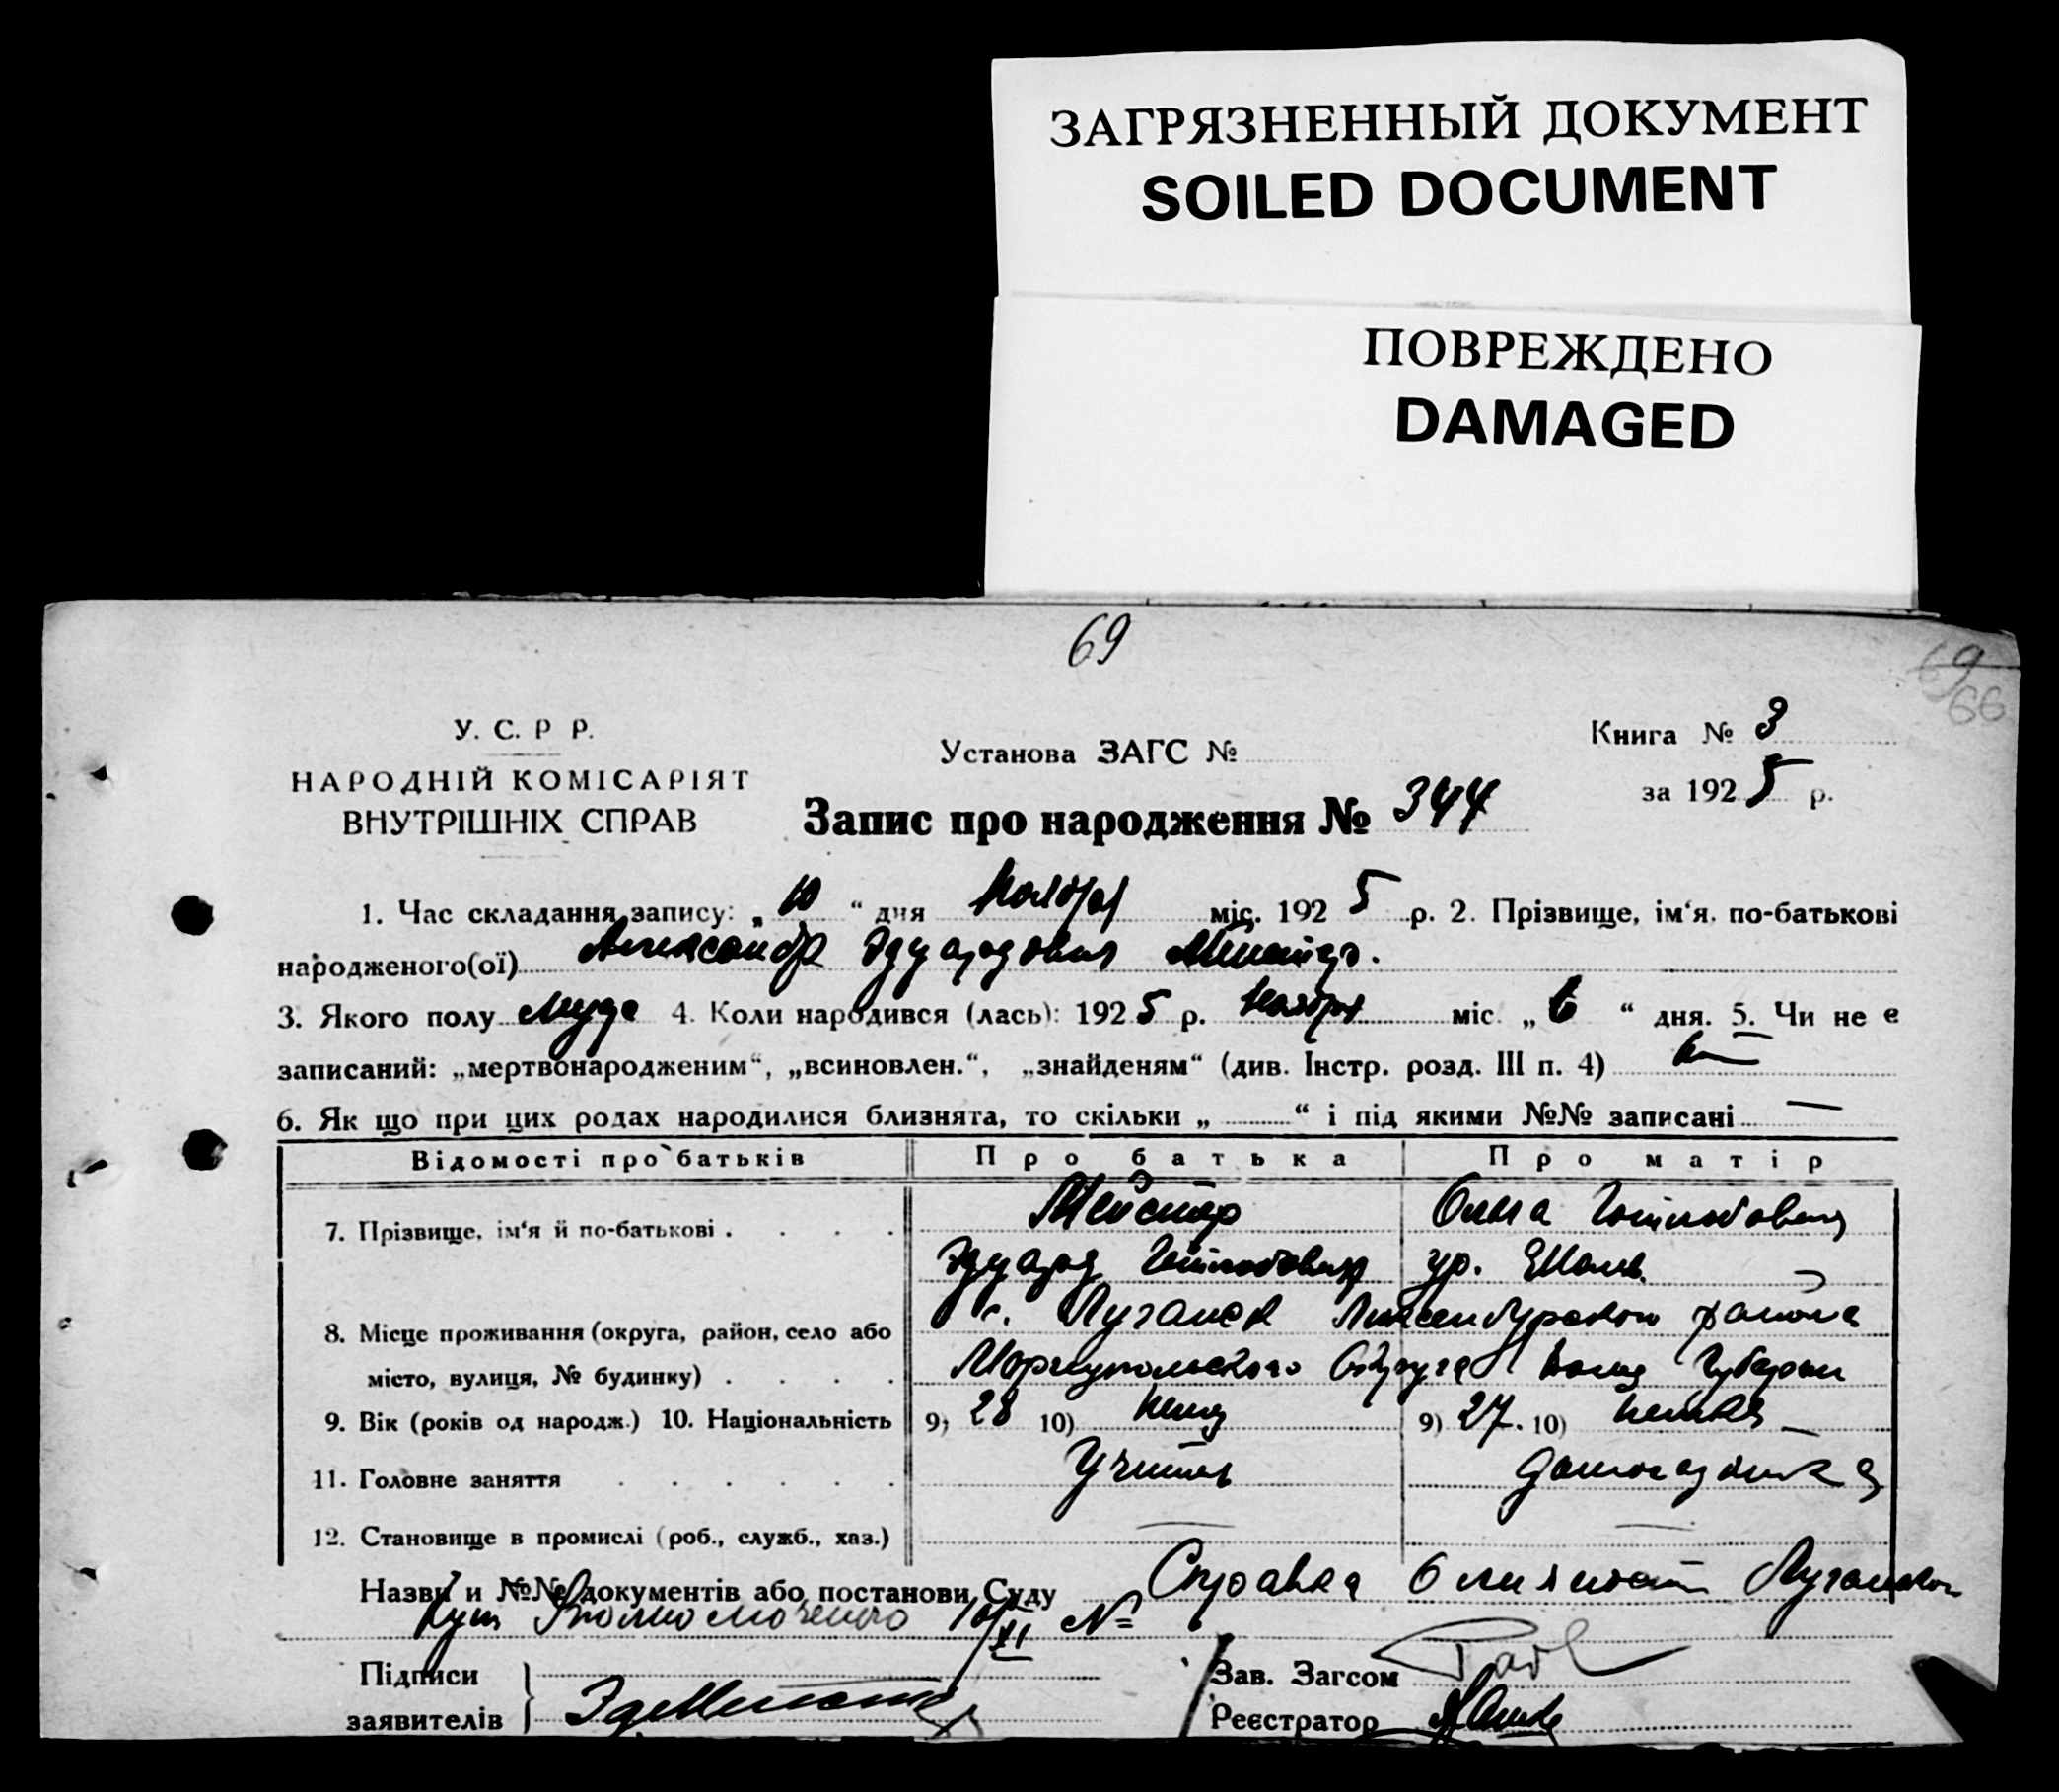 ЗАГРЯЗНЕННЫЙ ДОКУМЕНТ
SOILED DOCUMENT
ПОВРЕЖДЕНО
DAMAGED
69
69
66
У. С. Р Р.
НАРОДНІЙ КОМІСАРІЯТ
ВНУТРІШНІХ СПРАВ
Установа ЗАГС №
Запис про народження № 344
Книга № 3
за 1925 р.
1. Час складання запису: „ 10 “ дня Ноября міс. 1925 р. 2. Прізвище, ім‘я, по-батькові
народженого(ої) Александр Эдуардович Мейстер.
3. Якого полу мужс 4. Коли народився (лась): 1925 р. Ноября міс. „ 6 “ дня. 5. Чи не є
записаний: „мертвонародженим“, „всиновлен.“, „знайденям“ (див. Інстр. розд. III п. 4)
6. Як що при цих родах народилися близнята, то скільки „ “ і під якими №№ записані —
Відомості про батьків Про батька Про матір
7. Прізвище, ім‘я й по-батькові . . . . Мейстер Ольга Готлибовна
Эдуард Готлибович ур.
8. Місце проживання (округа, район, село або с. Луганск Люксембургского района
місто, вулиця, № будинку) . . . . Мариупольского Округа Донец Губернии
9. Вік (років од народж.) 10. Національність 9) 28 10) немец 9) 27. 10) немка
11. Головне заняття . . . . . . Учитель домохозяйка
12. Становище в промислі (роб., служб., хаз.) — —
Назви и №№ документів або постанови Суду Справка
10/XI №
Підписи
заявителів
Зав. Загсом
Реєстратор